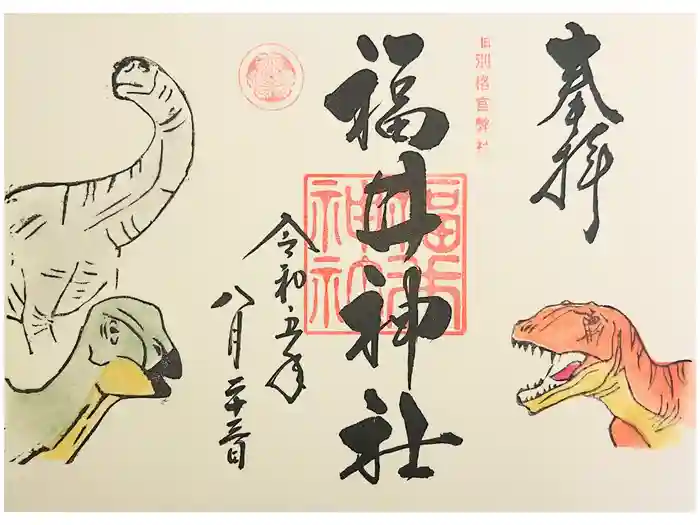 奉拝
旧別格官幣社
福井神社
福井神社
令和五年
八月二十三日